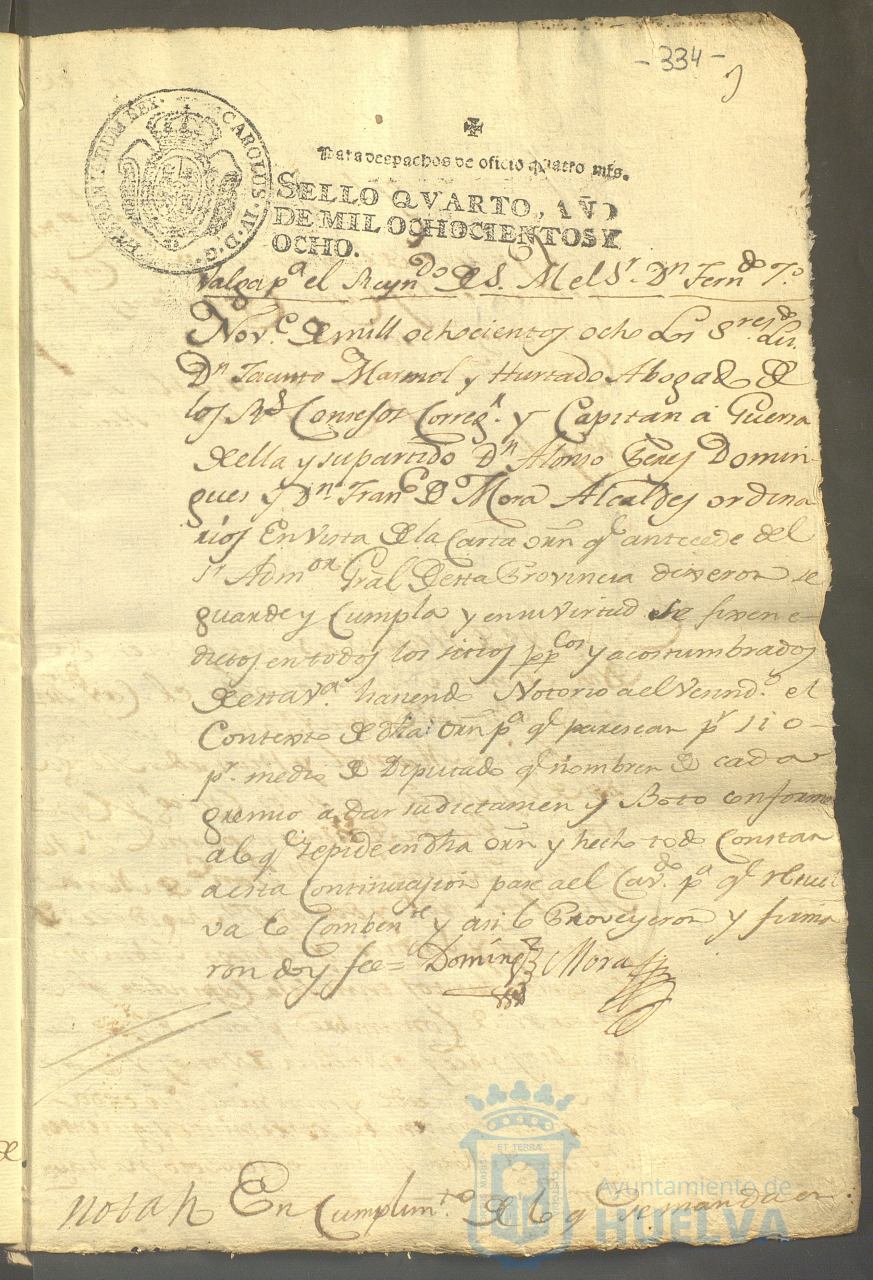 - 334 -
CAROLUS IV D. G. HISPANIARUM REX
Para despachos de oficio quatro mrs.
SELLO QVARTO, AÑO
DE MIL OCHOCIENTOS Y
OCHO.
Valga pa el Reyndo de S. M el Sr. Dn Ferndo 7.o
Nove de mill ochocientos ocho Los Sres
Dn Jacinto Marmol y Hurtado Abogado de
los Rs Consejos Corregr. y Capitan a Guerra
de ella y su partido Dn Alonso Peres Domin-
gues y Dn Franco de Mora Alcaldes ordina
rios En vista de la Carta orn qe antecede del
Sr Admor Gral de esta Provincia dixeron se
guarde y Cumpla y en su virtud se fixen e-
dictos en todos los sitios ppcos y acostumbrados
de esta va. haciendo Notorio a el Vecindo. el
Contexto de dha orn pa qe paresean pr si o
pr. medio de Diputado qe nombren de cada
gremio a dar su dictamen y Boto conforme
a lo qe se pide en dha orn y hecho todo Constar
a esta Continuazion pase a el Cavdo. pa qe resuel
va lo Combente y asi lo Proveyeron y firma
ron doy fee =
Domingz Mora
Nota En Cumplimto. de lo qe se manda en
ET TERRÆ
Ayuntamiento de
HUELVA